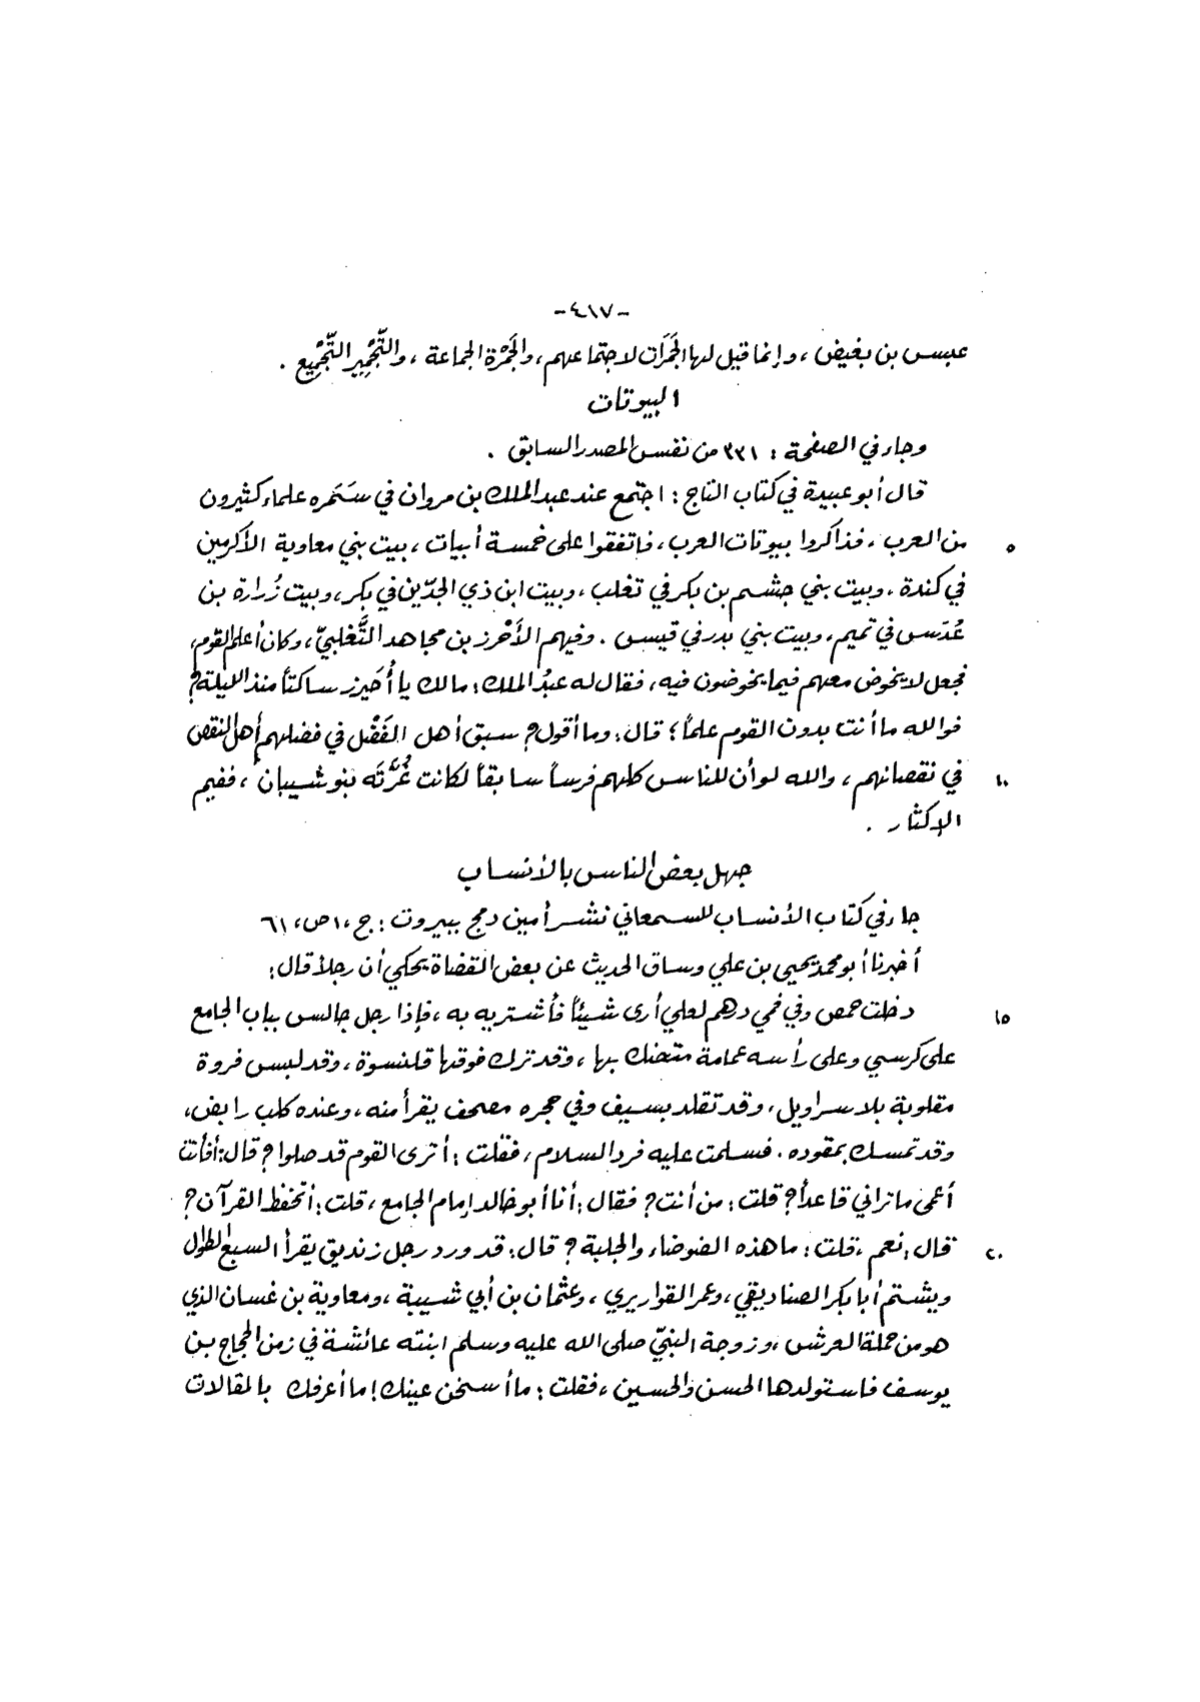 -٤١٧-
عبس بن بغيض، وإنما قيل لها الجَمَرَات لاجتماعهم، والجَمْرَة الجماعة، والتَّجْمِير التَّجْمِيع.
البيوتات
وجاء في الصفحة: ٣٣١ من نفس المصدر السابق.
قال أبو عبيدة في كتاب التاج: اجتمع عند عبد الملك بن مروان في سَمَره علماء كثيرون
من العرب، فذاكروا بيوتات العرب، فاتفقوا على خمسة أبيات، بيت بني معاوية الأكرمين
٥
في كندة، وبيت بني جشم بن بكر في تغلب، وبيت ابن ذي الجدّين في بكر، وبيت زُرارة بن
عُدَس في تميم، وبيت بني بدر في قيس. وفيهم الأَحْرَز بن مجاهد التَّغلبيّ، وكان أعلم القوم،
فجعل لا يخوض معهم فيما يخوضون فيه، فقال له عبدُ الملك: مالك يا أُحَيرز ساكتاً منذ الليلة؟
فوالله ما أنت بدون القوم علماً؛ قال: وما أقول؟ سبق أهل الفَضْل في فضلهم أهل النقص
في نقصانهم، والله لو أن للناس كلهم فرساً سابقاً لكانت غُرَّتَه بنو شيبان، ففيم
١٠
الإكثار.
جهل بعض الناس بالأنساب
جاء في كتاب الأنساب للسمعاني نشر أمين دمج ببيروت: ج، ١ ص، ٦١
أخبرنا أبو محمد يحيى بن علي وساق الحديث عن بعض القضاة يحكي أن رجلاً قال:
دخلت حمص وفي فمي درهم لعلي أرى شيئاً فأشتريه به، فإذا رجل جالس بباب الجامع
١٥
على كرسي وعلى رأسه عمامة متحنك بها، وقد ترك فوقها قلنسوة، وقد لبس فروة
مقلوبة بلا سراويل، وقد تقلد بسيف وفي حجره مصحف يقرأ منه، وعنده كلب رابض،
وقد تمسك بمقوده. فسلمت عليه فرد السلام، فقلت: أترى القوم قد صلوا؟ قال: أفأنت
أعمى ما تراني قاعداً؟ قلت: من أنت؟ فقال: أنا أبو خالد إمام الجامع، قلت: أتحفظ القرآن؟
قال: نعم، قلت: ما هذه الضوضاء والجلبة؟ قال: قد ورد رجل زنديق يقرأ السبع الطول
٢٠
ويشتم أبا بكر الصناديقي، وعمر القواريري، وعثمان بن أبي شيبة، ومعاوية بن غسان الذي
هو من حملة العرش، وزوجة النبيّ صلى الله عليه وسلم ابنته عائشة في زمن الحجاج بن
يوسف فاستولدها الحسن والحسين، فقلت: ما أسخن عينك! ما أعرفك بالمقالات